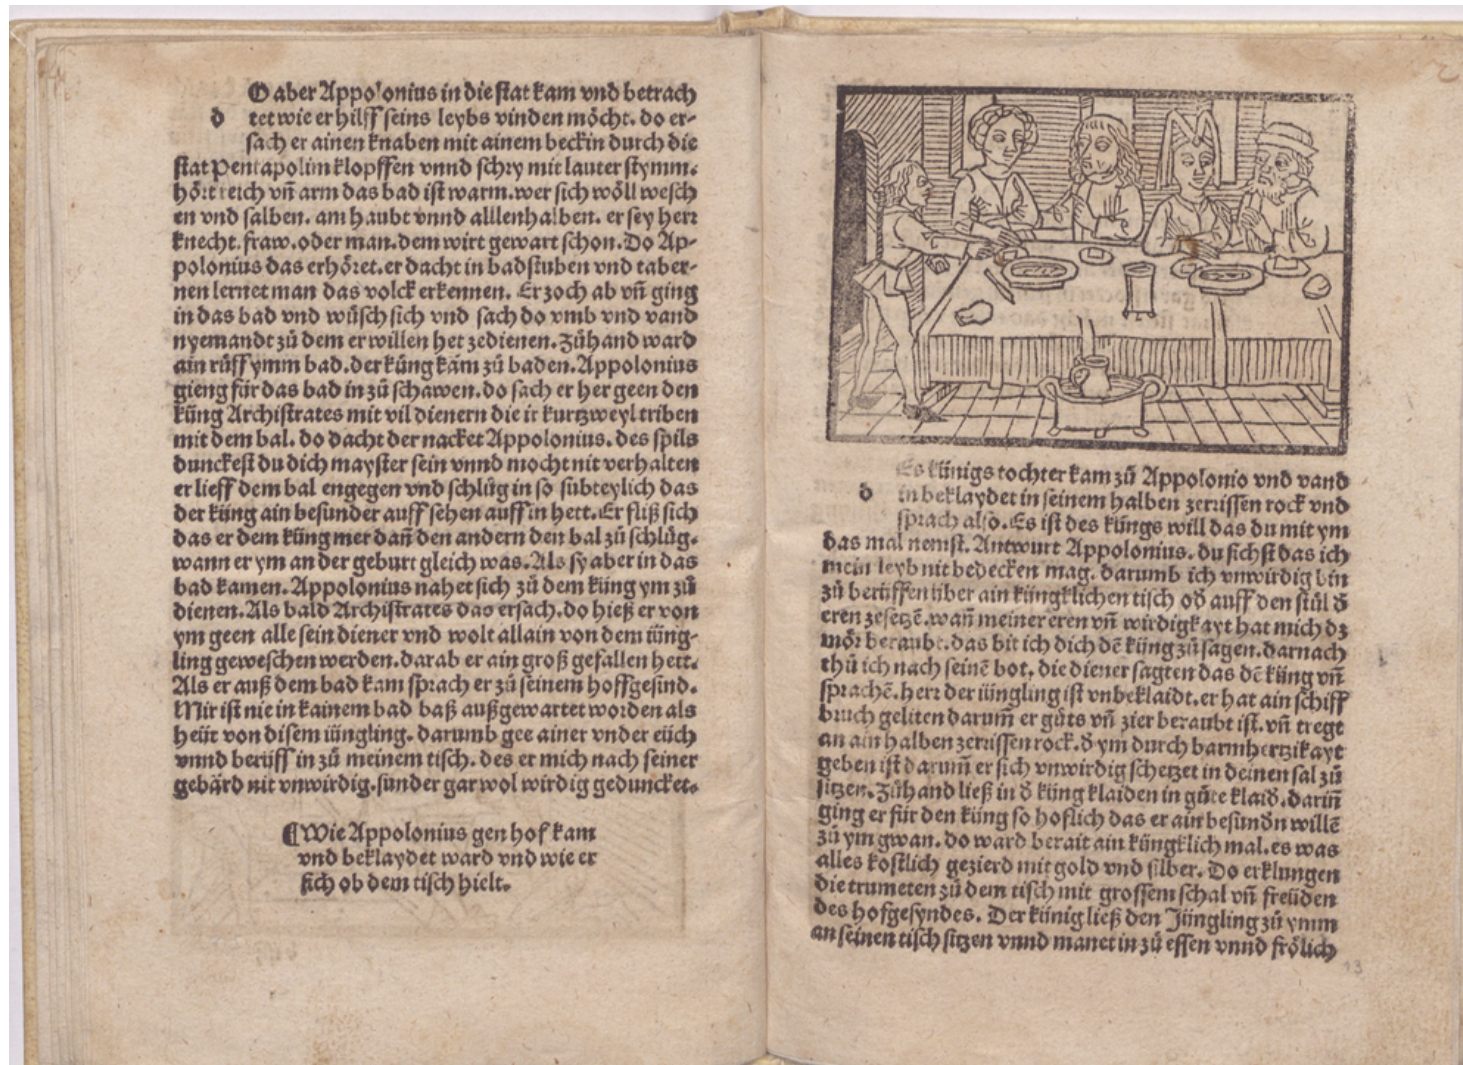 O aber Appolonius in die stat kam vnd betrach
d tet wie er hilff seins leybs vinden möcht. do er-
sach er ainen knaben mit ainem beckin durch die
stat Pentapolim klopffen vnnd schry mit lauter stymm.
hört reich vñ arm das bad ist warm. wer sich wöll wesch
en vnd salben. am haubt vnnd alllenhalben. er sey herr
knecht. fraw. oder man. dem wirt gewart schon. Do Ap-
polonius das erhöret. er dacht in badstuben vnd taber-
nen lernet man das volck erkennen. Er zoch ab vñ ging
in das bad vnd wüsch sich vnd sach do vmb vnd vand
nyemandt zů dem er willen het zedienen. Zůhand ward
ain růff ymm bad. der küng käm zů baden. Appolonius
gieng für das bad in zů schawen. do sach er her geen den
küng Archistrates mit vil dienern die ir kurtzweyl triben
mit dem bal. do dacht der nacket Appolonius. des spils
dunckest du dich mayster sein vnnd mocht nit verhalten
er lieff dem bal engegen vnd schlůg in so subteylich das
der küng ain besunder auff sehen auff in hett. Er fliß sich
das er dem küng mer dañ den andern den bal zů schlůg.
wann er ym an der geburt gleich was. Als sy aber in das
bad kamen. Appolonius nahet sich zů dem küng ym zů
dienen. Als bald Archistrates das ersach. do hieß er von
ym geen alle sein diener vnd wolt allain von dem iüng-
ling geweschen werden. darab er ain groß gefallen hett.
Als er auß dem bad kam sprach er zů seinem hoffgesind.
Mir ist nie in kainem bad baß außgewartet worden als
heüt von disem iüngling. darumb gee ainer vnder eüch
vnnd berüff in zů meinem tisch. des er mich nach seiner
gebärd nit vnwirdig. sunder gar wol wirdig geduncket.
¶ Wie Appolonius gen hof kam
vnd beklaydet ward vnd wie er
sich ob dem tisch hielt.
2
Es künigs tochter kam zů Appolonio vnd vand
d in beklaydet in seinem halben zerrissen rock vnd
sprach also. Es ist des küngs will das du mit ym
das mal nemst. Antwurt Appolonius. du sichst das ich
mein leyb nit bedecken mag. darumb ich vnwirdig bin
zů berüffen über ain küngklichen tisch oď auff den stůl ď
eren zesetzē. wañ meiner eren vñ wirdigkayt hat mich dz
mör beraubt. das bit ich dich dē küng zů sagen. darnach
thů ich nach seinē bot. die diener sagten das dē küng vñ
sprachē. herr der iüngling ist vnbeklaidt. er hat ain schiff
bruch geliten darum̄ er gůts vñ zier beraubt ist. vñ tregt
an ain halben zerrissen rock. ď ym durch barmhertzikayt
geben ist darum̄ er sich vnwirdig schetzet in deinen sal zů
sitzen. Zůhand ließ in ď küng klaiden in gůte klaiď. dariñ
ging er für den küng so hoflich das er ain besunďn willē
zů ym gwan. do ward berait ain küngklich mal. es was
alles kostlich gezierd mit gold vnd silber. Do erklungen
die trumeten zů dem tisch mit grossem schal vñ freüden
des hofgesyndes. Der künig ließ den Jüngling zů ymm
an seinen tisch sitzen vnnd manet in zů essen vnnd frölich
13